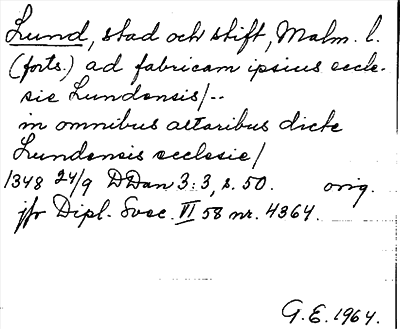 Lund, stad och stift, Malm. l.
(forts.) ad fabricam ipsius eccle-
sie Lundensis/--
in omnibus altaribus dicte
Lundensis ecclesie/
1348 24/9 DDan 3:3, s. 50. orig.
jfr Dipl. Svec. VI 58 nr. 4364.
G.E. 1964.